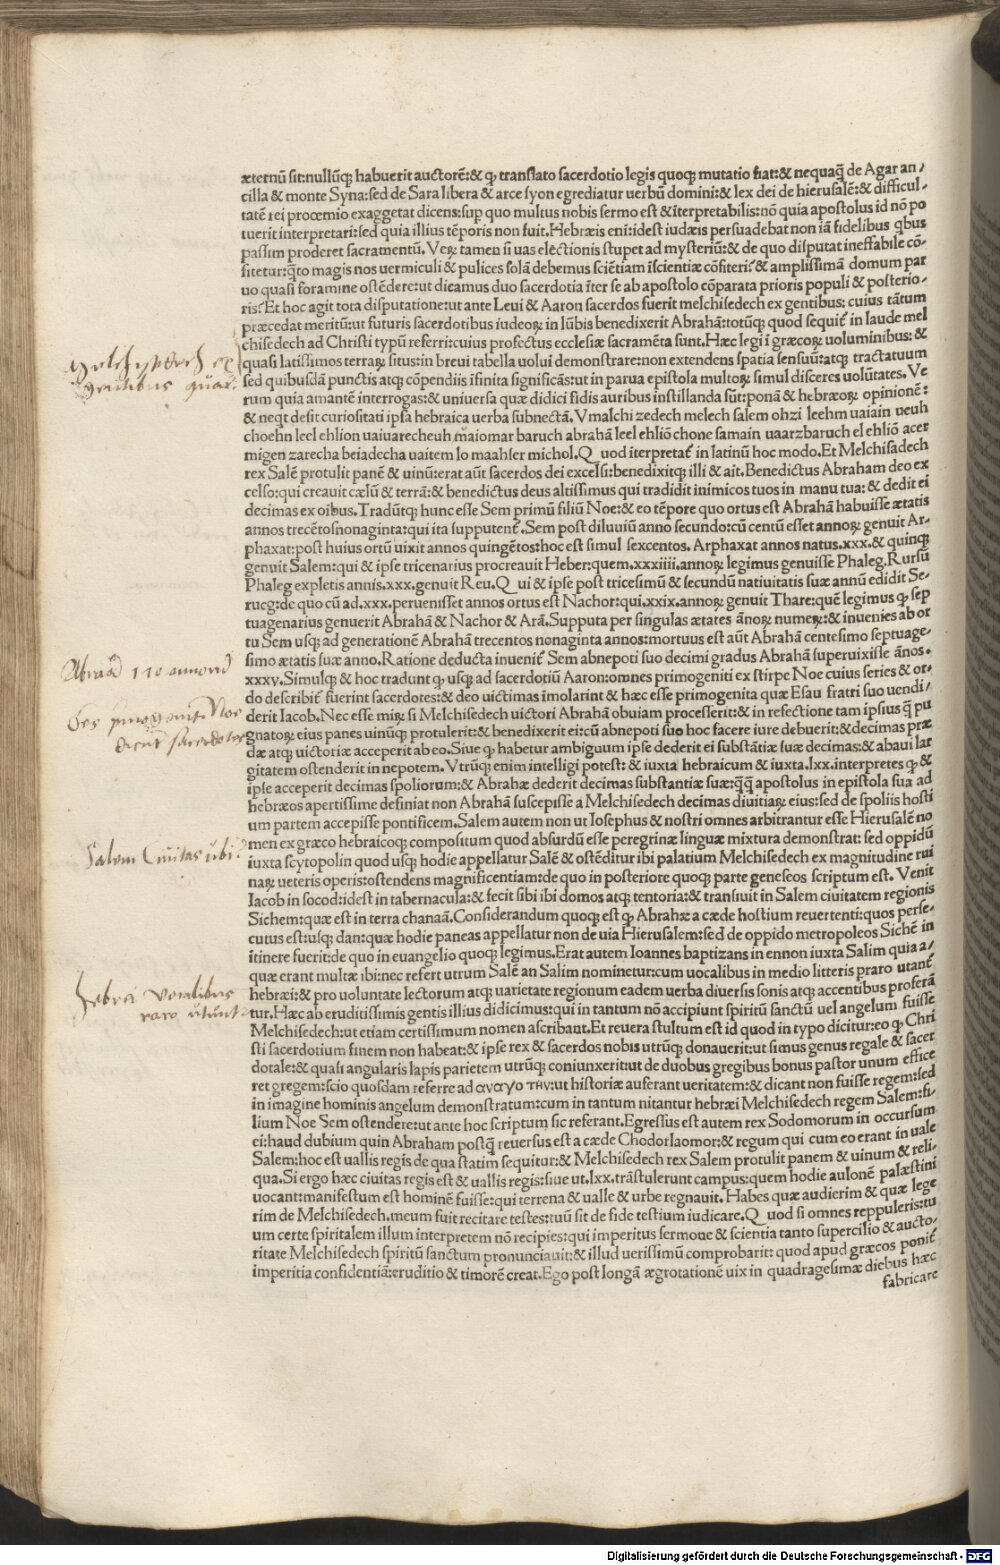 æternũ sit:nullũq; habuerit auctorẽ:& ꝙ translato sacerdotio legis quoq; mutatio fiat:& nequaq̃ de Agar an/
cilla & monte Syna:sed de Sara libera & arce syon egrediatur uerbũ domini:& lex dei de hierusalẽ:& difficul/
tatẽ rei procemio exaggetat dicens:sup quo multus nobis sermo est & ĩterpretabilis:nõ quia apostolus id nõ po
tuerit interpretari:sed quia illius tẽporis non fuit.Hebræis eni:idest iudæis persuadebat non iã fidelibus qbus
passim proderet sacramentũ. Veꝝ tamen si uas electionis stupet ad mysteriũ:& de quo disputat ineffabile cõ/
fitetur:q̃to magis nos uermiculi & pulices solã debemus sciẽtiam ĩscientiæ cõfiteri?& amplissimã domum par
uo quasi foramine ostẽdere:ut dicamus duo sacerdotia ĩter se ab apostolo cõparata prioris populi & posterio/
ris?Et hoc agit tota disputatione:ut ante Leui & Aaron sacerdos fuerit melchisedech ex gentibus: cuius tãtum
præcedat meritũ:ut futuris sacerdotibus iudeoꝝ in lũbis benedixerit Abrahã:totũq; quod sequit̃ in laude mel
chisedech ad Christi typũ referri:cuius profectus ecclesiæ sacramẽta sunt.Hæc legi ĩ græcoꝝ uoluminibus:&
quasi latissimos terraꝝ situs:in breui tabella uolui demonstrare:non extendens spatia sensuũ:atq; tractatuum
sed quibusdã punctis atq; cõpendiis ĩfinita significãs:ut in parua epistola multoꝝ simul disceres uolũtates. Ve
rum quia amantẽ interrogas:& uniuersa quæ didici fidis auribus instillanda sũt:ponã & hebræoꝝ opinionẽ:
& neqt desit curiositati ipsa hebraica uerba subnectã. Vmalchi zedech melech salem ohzi leehm uaiain ueuh
choehn leel ehlion uaiuarecheuh maiomar baruch abrahã leel ehliõ chone samain uaarzbaruch el ehliõ acer
migen zarecha beiadecha uaitem lo maahser michol.Q uod ĩterpretat̃ in latinũ hoc modo.Et Melchisadech
rex Salẽ protulit panẽ & uinũ:erat aũt sacerdos dei excelsi:benedixitq; illi & ait.Benedictus Abraham deo ex
celso:qui creauit cælũ & terrã:& benedictus deus altissimus qui tradidit inimicos tuos in manu tua: & dedit ei
decimas ex oibus.Tradũtq; hunc esse Sem primũ filiũ Noe:& eo tẽpore quo ortus est Abrahã habuisse ætatis
annos trecẽtosnonaginta:qui ita supputent̃.Sem post diluuiũ anno secundo:cũ centũ esset annoꝝ genuit Ar/
phaxat:post huius ortũ uixit annos quingẽtos:hoc est simul sexcentos. Arphaxat annos natus.xxx.& quinq;
genuit Salem:qui & ipse tricenarius procreauit Heber:quem.xxxiiii.annoꝝ legimus genuisse Phaleg.Rursũ
Phaleg expletis annis.xxx.genuit Reu.Q ui & ipse post tricesimũ & secundũ natiuitatis suæ annũ edidit Se/
rucg:de quo cũ ad.xxx.peruenisset annos ortus est Nachor:qui.xxix.annoꝝ genuit Thare:quẽ legimus ꝙ sep
tuagenarius genuerit Abrahã & Nachor & Arã.Supputa per singulas ætates ãnoꝝ numeꝝ:& inuenies ab or
tu Sem usq; ad generationẽ Abrahã trecentos nonaginta annos:mortuus est aũt Abrahã centesimo septuage/
simo ætatis suæ anno.Ratione deducta inuenit̃ Sem abnepoti suo decimi gradus Abrahã superuixisse ãnos.
xxxv.Simulq; & hoc tradunt ꝙ usq; ad sacerdotiũ Aaron:omnes primogeniti ex stirpe Noe cuius series & or/
do describit̃ fuerint sacerdotes:& deo uictimas imolarint & hæc esse primogenita quæ Esau fratri suo uendi/
derit Iacob.Nec esse miꝝ si Melchisedech uictori Abrahã obuiam processerit:& in refectione tam ipsius q̃ pu
gnatoꝝ eius panes uinũq; protulerit:& benedixerit ei:cũ abnepoti suo hoc facere iure debuerit:& decimas præ
dæ atq; uictoriæ acceperit ab eo.Siue ꝙ habetur ambiguum ipse dederit ei substãtiæ suæ decimas:& abaui lar
gitatem ostenderit in nepotem. Vtrũq; enim intelligi potest: & iuxta hebraicum & iuxta.lxx.interpretes ꝙ &
ipse acceperit decimas spoliorum:& Abrahæ dederit decimas substantiæ suæ:q̃q̃ apostolus in epistola sua ad
hebræos apertissime definiat non Abrahã suscepisse a Melchisedech decimas diuitiaꝝ eius:sed de spoliis hosti
um partem accepisse pontificem.Salem autem non ut Iosephus & nostri omnes arbitrantur esse Hierusalẽ no
men ex græco hebraicoq; compositum quod absurdũ esse peregrinæ linguæ mixtura demonstrat: sed oppidũ
iuxta scytopolin quod usq; hodie appellatur Salẽ & ostẽditur ibi palatium Melchisedech ex magnitudine rui
naꝝ ueteris operis:ostendens magnificentiam:de quo in posteriore quoq; parte geneseos scriptum est. Venit
Iacob in socod:idest in tabernacula:& fecit sibi ibi domos atq; tentoria:& transiuit in Salem ciuitatem regionis
Sichem:quæ est in terra chanaã.Considerandum quoq; est ꝙ Abrahæ a cæde hostium reuertenti:quos perse/
cutus est:usq; dan:quæ hodie paneas appellatur non de uia Hierusalem:sed de oppido metropoleos Sichẽ in
ĩtinere fuerit:de quo in euangelio quoq; legimus.Erat autem Ioannes baptizans in ennon iuxta Salim quia a/
quæ erant multæ ibi:nec refert utrum Salẽ an Salim nominetur:cum uocalibus in medio litteris praro utant̃
hebræi:& pro uoluntate lectorum atq; uarietate regionum eadem uerba diuersis sonis atq; accentibus proferã
tur.Hæc ab eruditissimis gentis illius didicimus:qui in tantum nõ accipiunt spiritũ sanctũ uel angelum fuisse
Melchisedech:ut etiam certissimum nomen ascribant.Et reuera stultum est id quod in typo dicitur:eo ꝙ Chri
sti sacerdotium finem non habeat:& ipse rex & sacerdos nobis utrũq; donauerit:ut simus genus regale & sacer
dotale:& quasi angularis lapis parietem utrũq; coniunxerit:ut de duobus gregibus bonus pastor unum effice
ret gregem:scio quosdam referre ad αναγο την:ut historiæ auferant ueritatem:& dicant non fuisse regem:sed
in imagine hominis angelum demonstratum:cum in tantum nitantur hebræi Melchisedech regem Salem:fi/
lium Noe Sem ostendere:ut ante hoc scriptum sic referant.Egressus est autem rex Sodomorum in occursum
ei:haud dubium quin Abraham postq̃ reuersus est a cæde Chodorlaomor:& regum qui cum eo erant in uale
Salem:hoc est uallis regis de qua statim sequitur:& Melchisedech rex Salem protulit panem & uinum & reli/
qua.Si ergo hæc ciuitas regis est & uallis regis:siue ut.lxx.trãstulerunt campus:quem hodie aulonẽ palæstini
uocant:manifestum est hominẽ fuisse:qui terrena & ualle & urbe regnauit. Habes quæ audierim & quæ lege
rim de Melchisedech.meum fuit recitare testes:tuũ sit de fide testium iudicare.Q uod si omnes reppuleris:tu
um certe spiritalem illum interpretem nõ recipies:qui imperitus sermone & scientia tanto supercilio & aucto/
ritate Melchisedech spiritũ sanctum pronunciauit:& illud uerissimũ comprobarit: quod apud græcos ponit̃
imperitia confidentiã:eruditio & timorẽ creat.Ego post longã ægrotationẽ uix in quadragesimæ diebus hæc
fabricare
Melchysedech ex
gentibus
Salem Ciuitas ubi
hebrei vocalibus
raro utunt̃
Digitalisierung gefördert durch die Deutsche Forschungsgemeinschaft - DFG